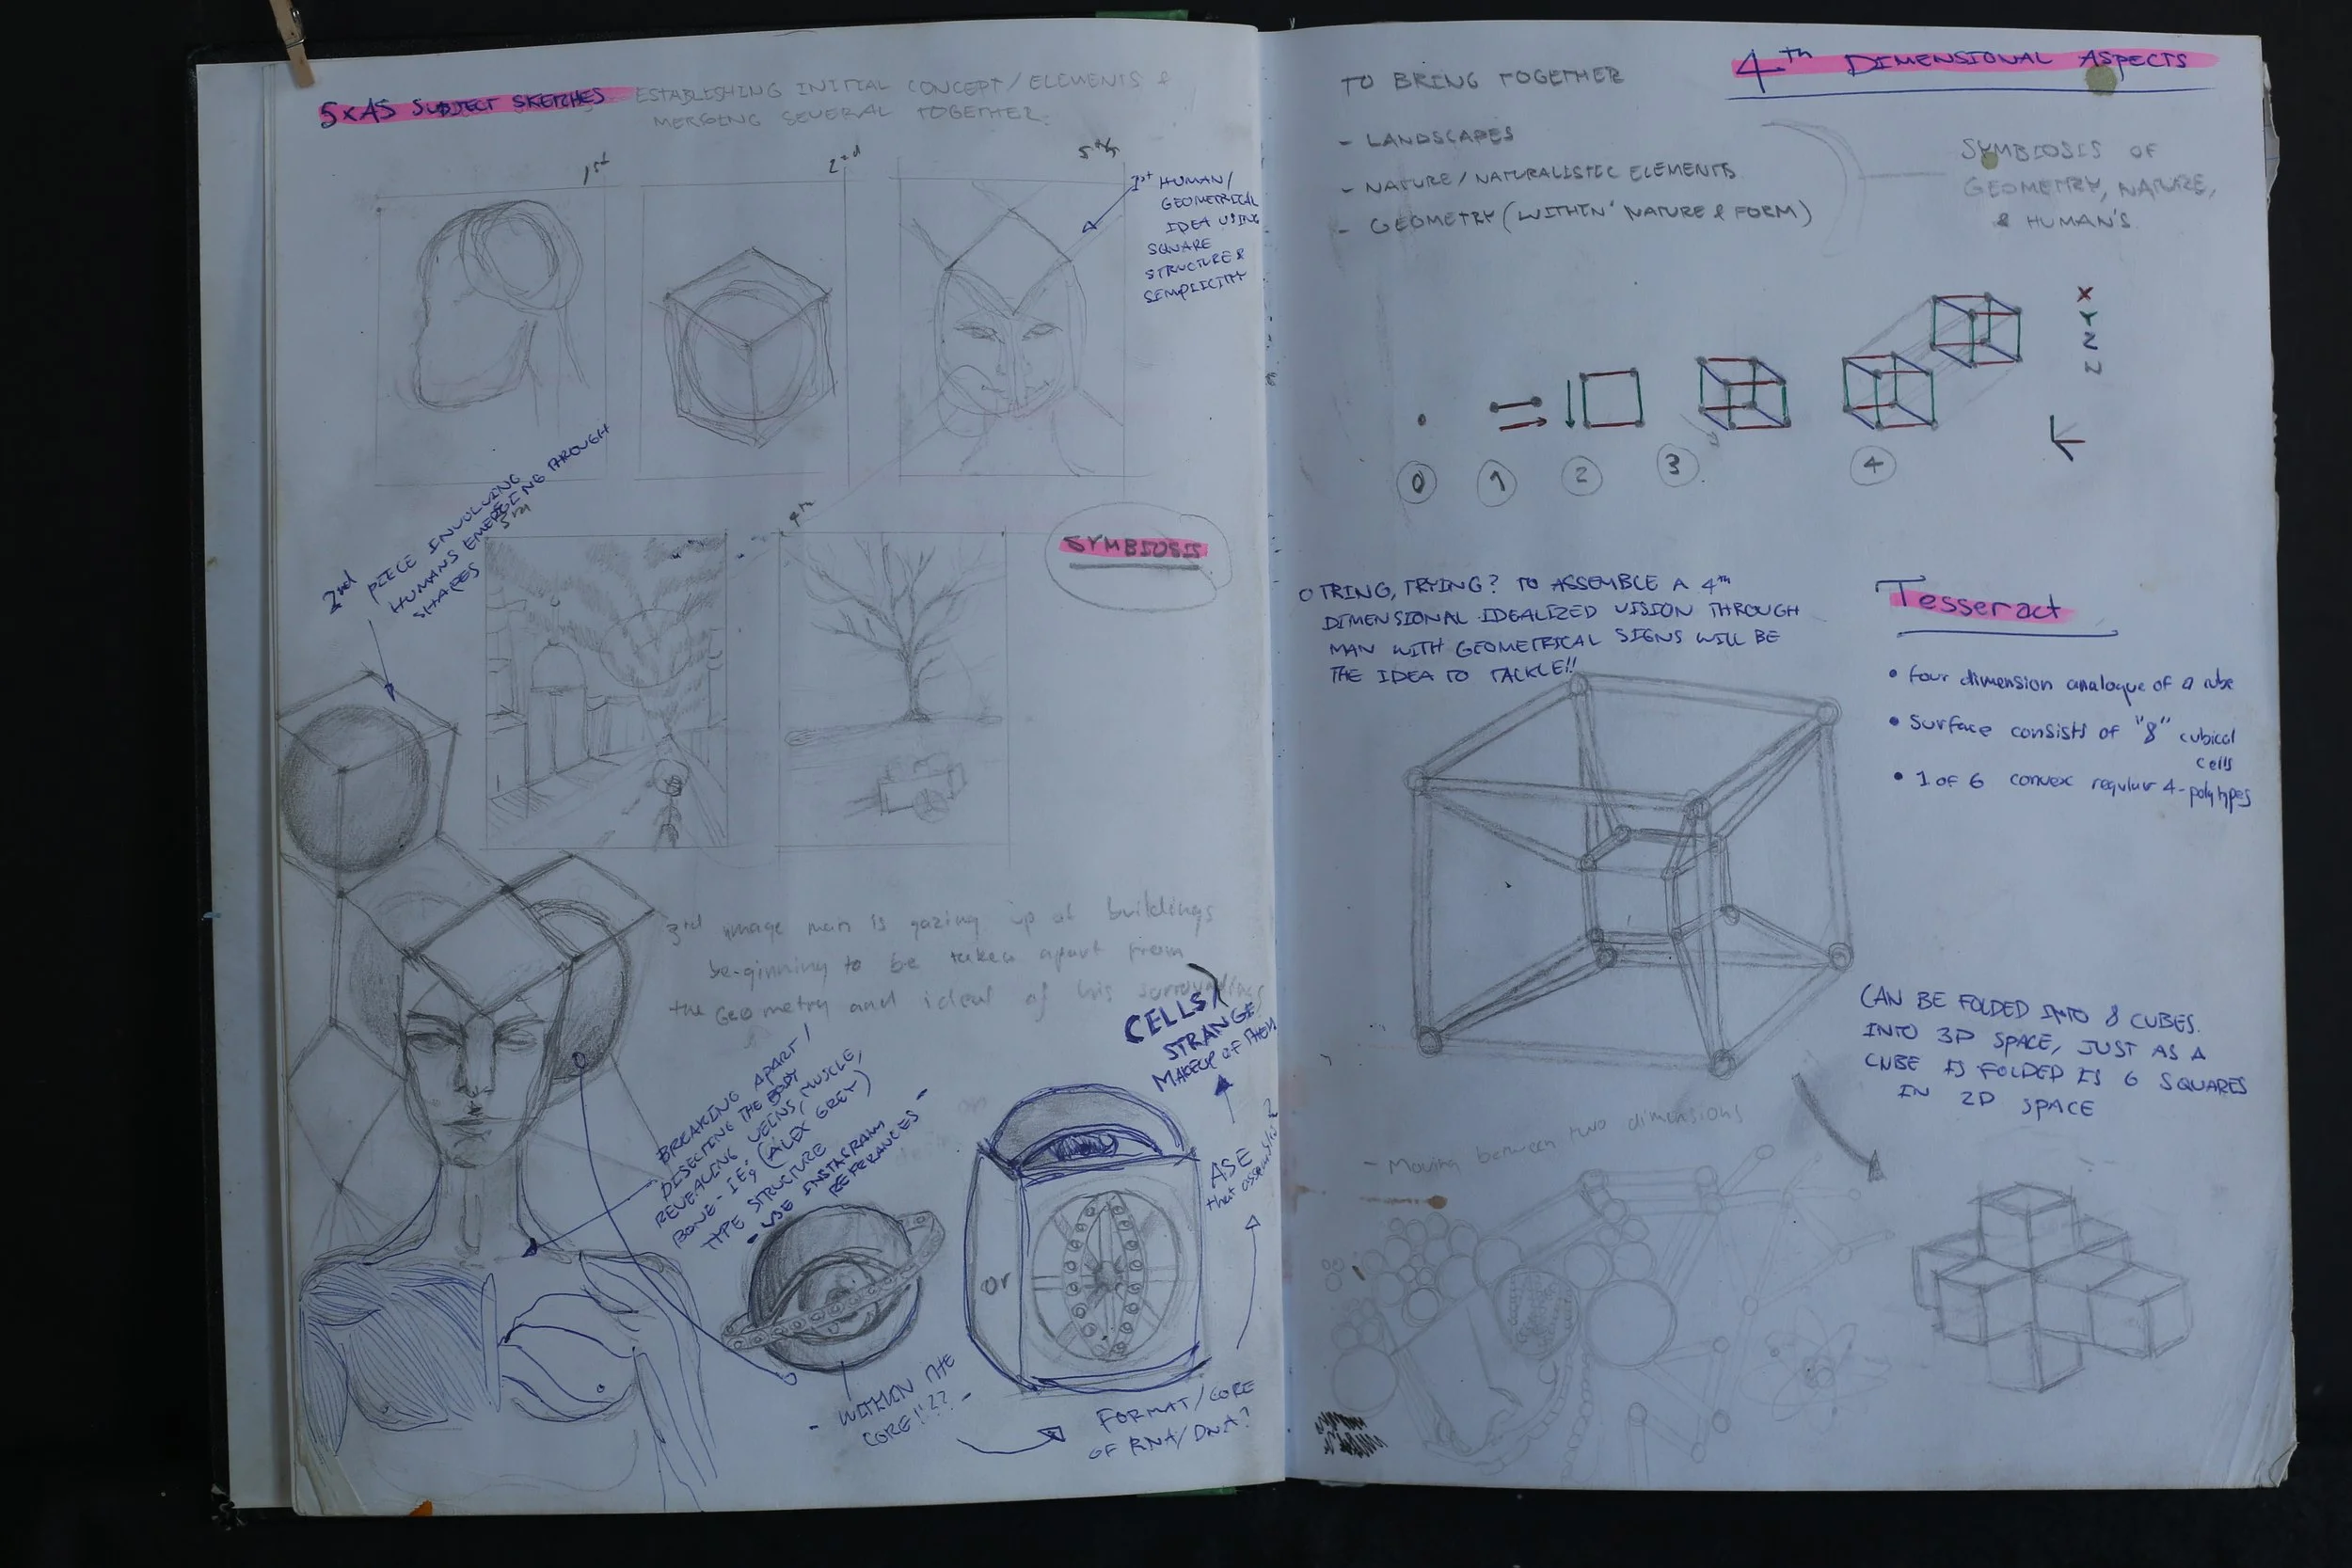 5XA5 SUBJECT SKETCHES ESTABLISHING INITIAL CONCEPT/ELEMENTS &
MERGING SEVERAL TOGETHER.
1st
2nd
5th
1st HUMAN/
GEOMETRICAL
IDEA USING
SQUARE
STRUCTURE &
SIMPLICITY
2nd PIECE INVOLVING
HUMANS EMERGING THROUGH
SHAPES
3rd
4th
SYMBIOSIS
3rd image man is gazing up at buildings
be-ginning to be taken apart from
the Geometry and ideal of his surroundings
BREAKING APART/
DISECTING THE BODY
REVEALING VEINS, MUSCLE,
BONE - I.E; (ALEX GREY)
TYPE STRUCTURE
- USE INSTAGRAM
REFERANCES -
CELLS/
STRANGE
MAKEUP OF THEM
ASE
that assembles?
or
- WITHIN THE
CORE!!?? -
FORMAT/CORE
OF RNA/DNA?
TO BRING TOGETHER
4th DIMENSIONAL ASPECTS
- LANDSCAPES
- NATURE/NATURALISTIC ELEMENTS
- GEOMETRY (WITHIN' NATURE & FORM)
SYMBIOSIS OF
GEOMETRY, NATURE,
& HUMAN'S
X
Y
Z
0
1
2
3
4
O TRING, TRYING? TO ASSEMBLE A 4th
DIMENSIONAL IDEALIZED VISION THROUGH
MAN WITH GEOMETRICAL SIGNS WILL BE
THE IDEA TO TACKLE!!
Tesseract
• four dimension analogue of a cube
• Surface consists of "8" cubical
cells
• 1 of 6 convex regular 4-polytypes
CAN BE FOLDED INTO 8 CUBES.
INTO 3D SPACE, JUST AS A
CUBE IS FOLDED IS 6 SQUARES
IN 2D SPACE
- Moving between two dimensions